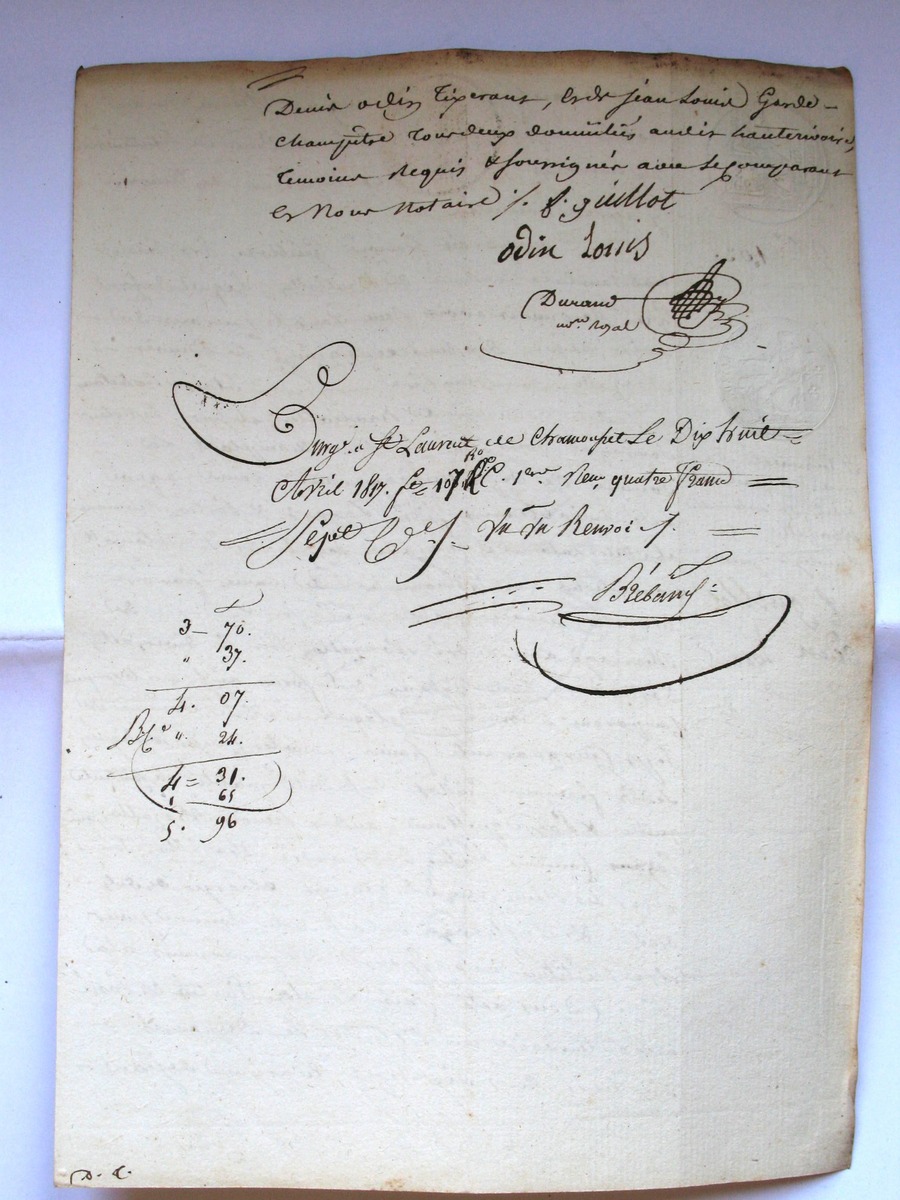 Denis odin Tixerant, et de jean Louis Garde-
champêtre tous deux domiciliés audit hauterivoire,
temoins Requis & soussignés avec le comparant
et Nous Notaire /. f. guillot
odin Louis
Durand
not.re royal
Enrg.é a St Laurent de Chamousset Le Dix huit
Avril 1817. f.o 107 R.o C. 1ere Reçu quatre francs
Sept C.es /. Vu un Renvoi /.
Rébaud
3 – 70.
" 37.
4. 07.
" 24.
4 = 31.
1 65
5. 96
D. C.